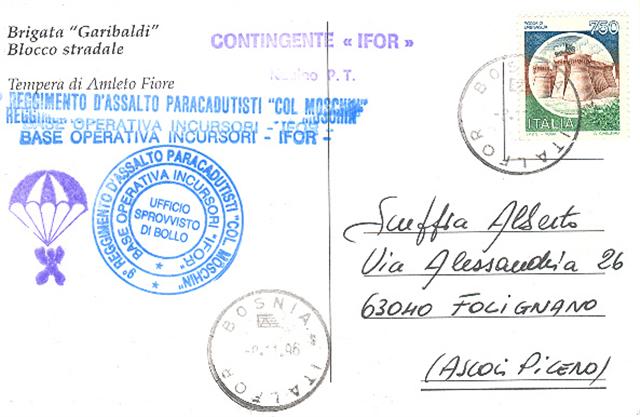 Brigata "Garibaldi"
Blocco stradale
Tempera di Amleto Fiore
CONTINGENTE « IFOR »
P. T.
REGGIMENTO D'ASSALTO PARACADUTISTI "COL MOSCHIN"
BASE OPERATIVA INCURSORI - IFOR -
BASE OPERATIVA INCURSORI - IFOR -
9º REGGIMENTO D'ASSALTO PARACADUTISTI "COL. MOSCHIN"
BASE OPERATIVA INCURSORI "IFOR"
UFFICIO
SPROVVISTO
DI BOLLO
750
ITALIA
BOSNIA
ITALFOR
BOSNIA
.11.96
ITALFOR
Alberto
Via Alessandria 26
63040 FOLIGNANO
(ASCOLI PICENO)